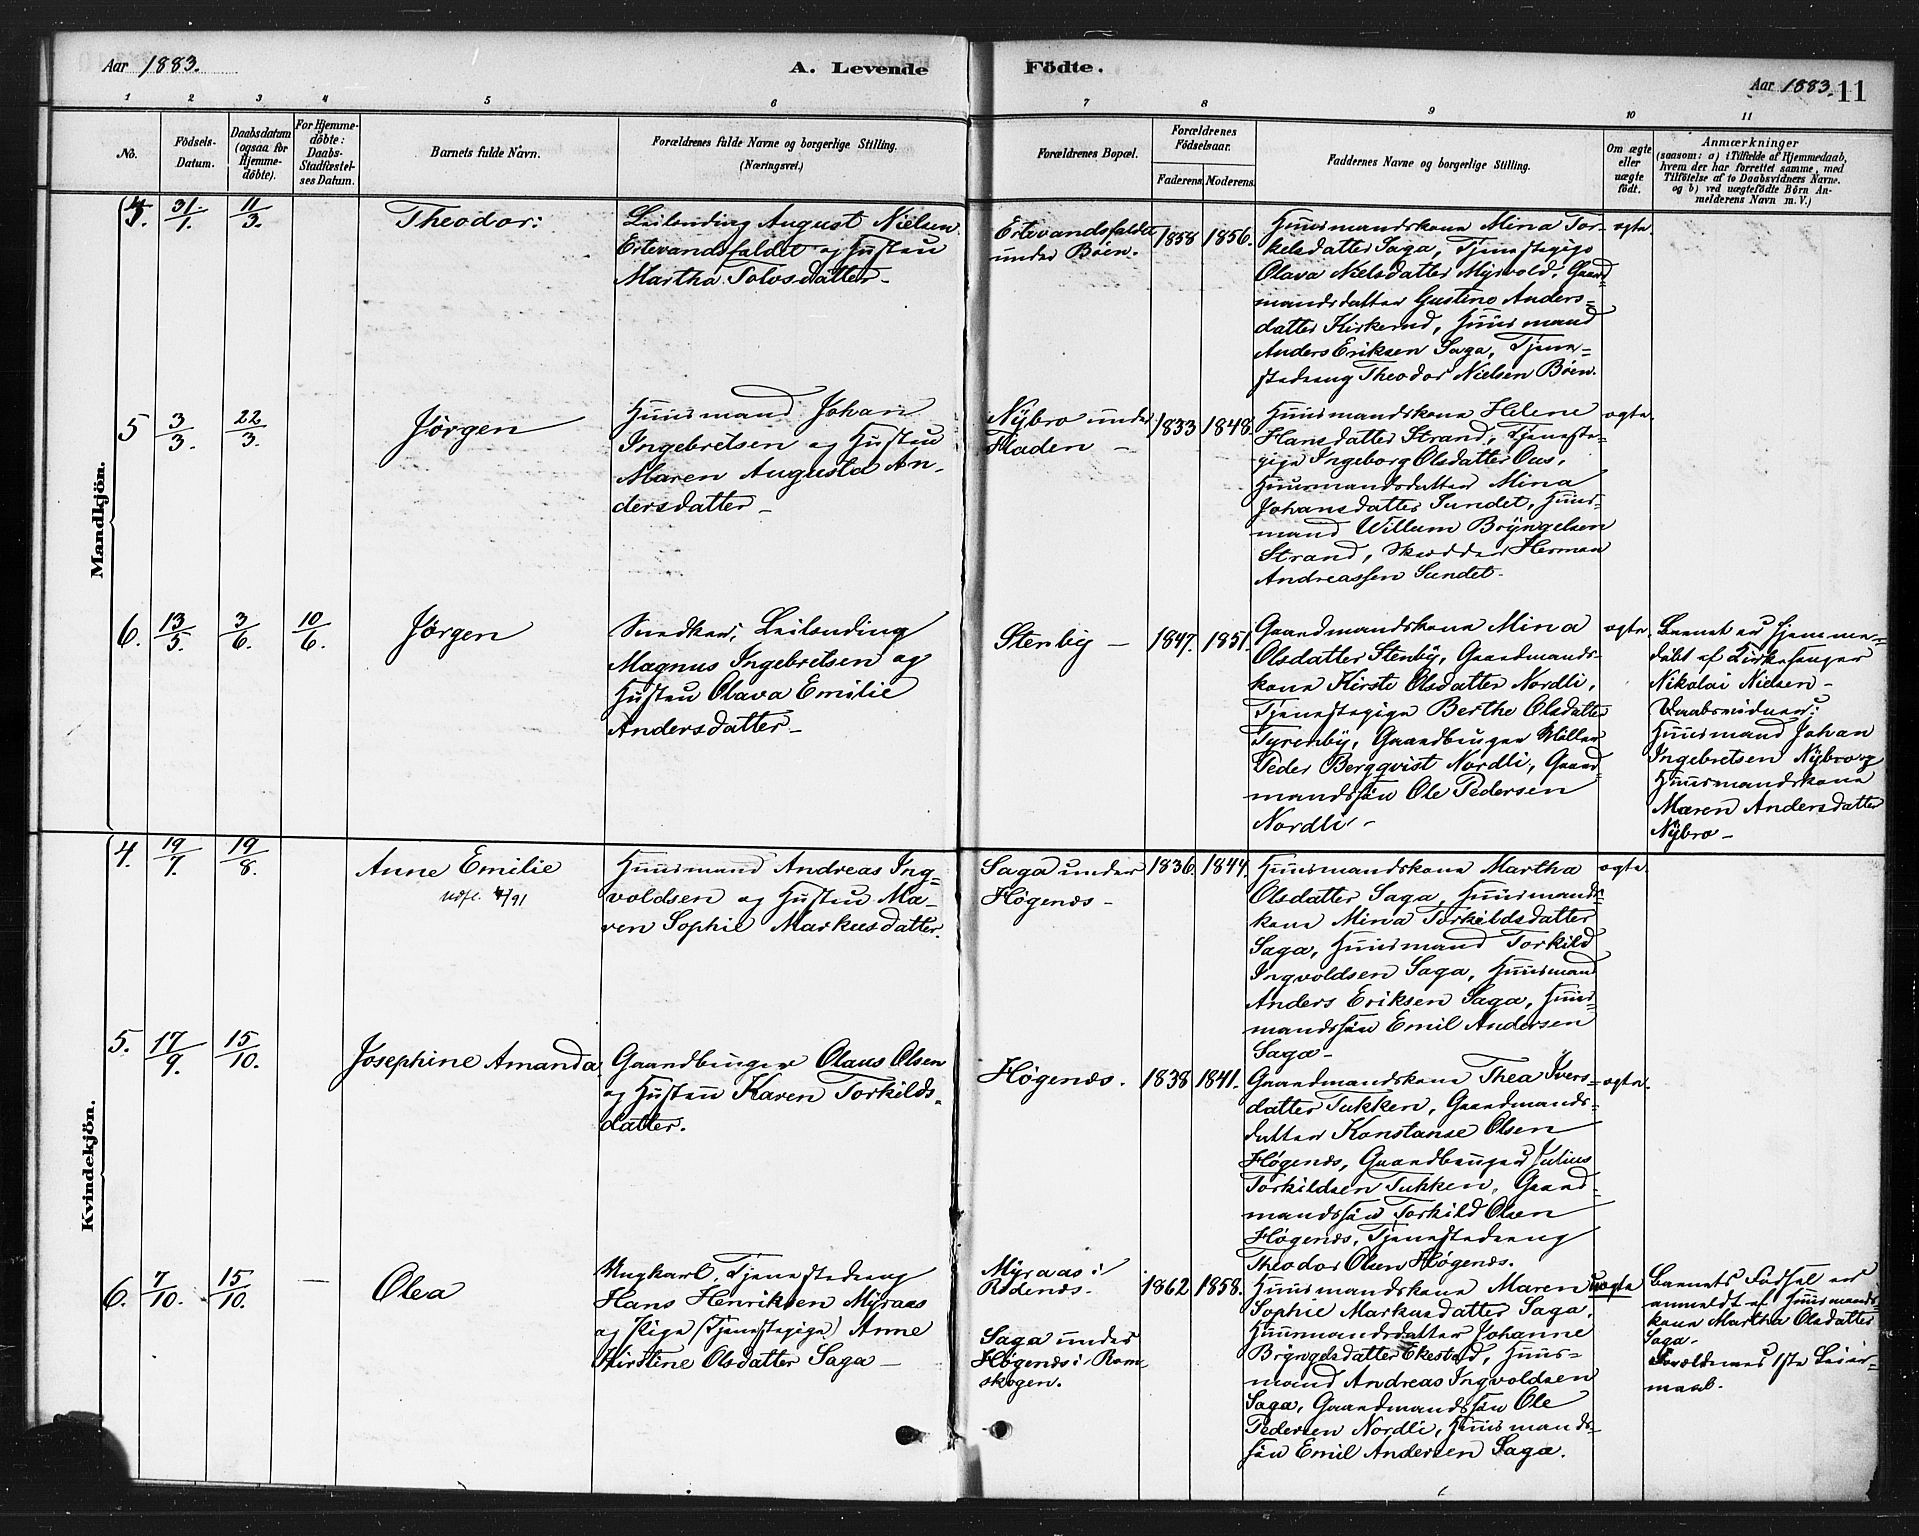 Aar 1883.
A. Levende
Födte.
Aar 1883. 11
1 2 3 4 5 6 7 8 9 10 11
No.
Födsels-
Datum.
Daabsdatum
(ogsaa for
Hjemme-
döbte).
For Hjemme-
döbte:
Daabs-
Stadfæstel-
ses Datum.
Barnets fulde Navn.
Forældrenes fulde Navne og borgerlige Stilling.
(Næringsvei.)
Forældrenes Bopæl.
Forældrenes
Födselsaar.
Faderens.
Moderens.
Faddernes Navne og borgerlige Stilling.
Om ægte
eller
uægte
födt.
Anmærkninger
(saasom: a) i Tilfælde af Hjemmedaab,
hvem der har forrettet samme, med
Tilföielse af to Daabsvidners Navne.
og b) ved uægtefödte Börn An-
melderens Navn m. V.)
Mandkjön.
31/1. 11/3. Theodor:
Leilending August Nielsen
Ertevandsfaldet og Hustru
Martha Tolvsdatter
Ertevandsfaldet
under Böen.
1858 1856.
Huusmandskone Mina Tor-
kelsdatter Saga, Tjenestepige
Olava Nielsdatter Myrvold, Gaard-
mandsdatter Gustine Anders-
datter Kirkerud, Huusmand
Anders Eriksen Saga, Tjene-
stedreng Theodor Nielsen Böen.
ægte.
5 3/3. 22/3. Jørgen
Huusmand Johan
Ingebretsen og Hustru
Maren Augusta An-
dersdatter
Nÿbro under
Fladen
1833 1848
Huusmandskone Helene
Hansdatter Strand, Tjeneste-
pige Ingeborg Olsdatter Ous,
Huusmandsdatter Mina
Johansdatter Sundet, Huus-
mand Willum Bryngelsen
Strand, Skrædder Herman
Andreassen Sundet.
ægte.
6. 13/5. 3/6. 10/6. Jørgen
Snedker, Leilending
Magnus Ingebretsen og
Hustru Olava Emilie
Andersdatter
Stenby
1847. 1851.
Gaardmandskone Mina
Olsdatter Stenby, Gaardmands-
kone Kirsti Olsdatter Nordli,
Tjenestepige Berthe Olsdatter
Tyrenby, Gaardbruger Möller
Peder Bergqvist Nordli, Gaard-
mandssøn Ole Pedersen
Nordli
ægte.
Barnet er hjemme-
döbt af Kirkesanger
Nikolai Nielsen
Daabsvidner:
Huusmand Johan
Ingebretsen Nÿbro og
Huusmandskone
Maren Andersdatter
Nÿbro
Kvindekjön.
4. 19/7. 19/8. Anne Emilie
Udfl. 4/91
Huusmand Andreas Ing-
voldsen og Hustru Ma-
ren Sophie Markusdatter.
Saga under
Høgenæs
1836. 1844.
Huusmandskone Martha
Olsdatter Saga, Huusmands-
kone Mina Torkildsdatter
Saga, Huusmand Torkild
Ingvoldsen Saga, Huusmand
Anders Eriksen Saga, Huus-
mandssøn Emil Andersen
Saga
ægte.
5. 17/9. 15/10. Josephine Amanda
Gaardbruger Olaus Olsen
og Hustru Karen Torkilds-
datter.
Høgenæs.
1838 1841.
Gaardmandskone Thea Ivers-
datter Tukken, Gaardmands-
datter Konstanse Olsen
Høgenæs, Gaardbruger Julius
Torkildsen Tukken, Gaard-
mandssøn Torkild Olsen
Høgenæs, Tjenestedreng
Theodor Olsen Høgenæs.
ægte.
6. 7/10. 15/10. Olea
Ungkarl, Tjenestedreng
Hans Henriksen Myraas
og Pige (Tjenestepige) Anne
Kirstine Olsdatter Saga
Myraas i
Rödenæs.
Saga under
Høgenæs i Rom-
skogen.
1862 1858.
Huusmandskone Maren
Sophie Markusdatter Saga,
Huusmandsdatter Johanne
Bryngelsdatter Ekestad, Huus-
mand Andreas Ingvoldsen
Saga, Gaardmandssøn Ole
Pedersen Nordli, Huusmands-
søn Emil Andersen Saga.
uægte
Barnets Fødsel er
anmeldt af Huusmands-
kone Martha Olsdatter
Saga.
Forældrenes 1ste Leier-
maal.